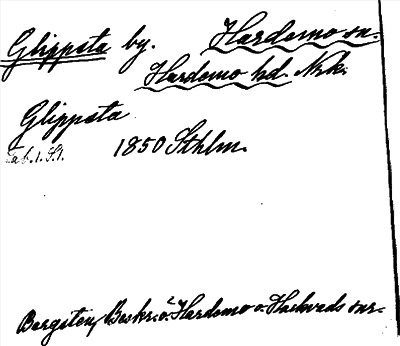 Glippsta by. Hardemo sn.
Hardemo hd. Nrk.
Glippsta
1850 Sthlm.
Bergsten, Beskr. ö. Hardemo o. Hackvads snr.